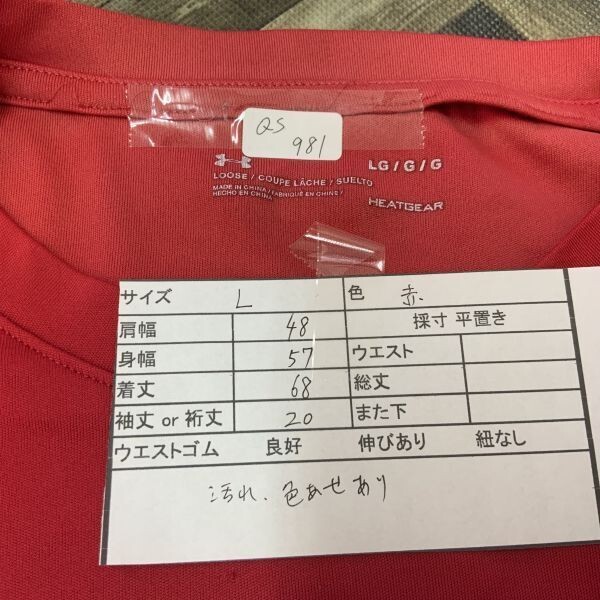 QS
981
LG / G / G
LOOSE / COUPE LÂCHE / SUELTO
MADE IN CHINA / FABRIQUÉ EN CHINE /
HECHO EN CHINA
HEATGEAR
サイズ L 色 赤
肩幅 48 採寸 平置き
身幅 57 ウエスト
着丈 68 総丈
袖丈 or 裄丈 20 また下
ウエストゴム 良好 伸びあり 紐なし
汚れ、色あせあり